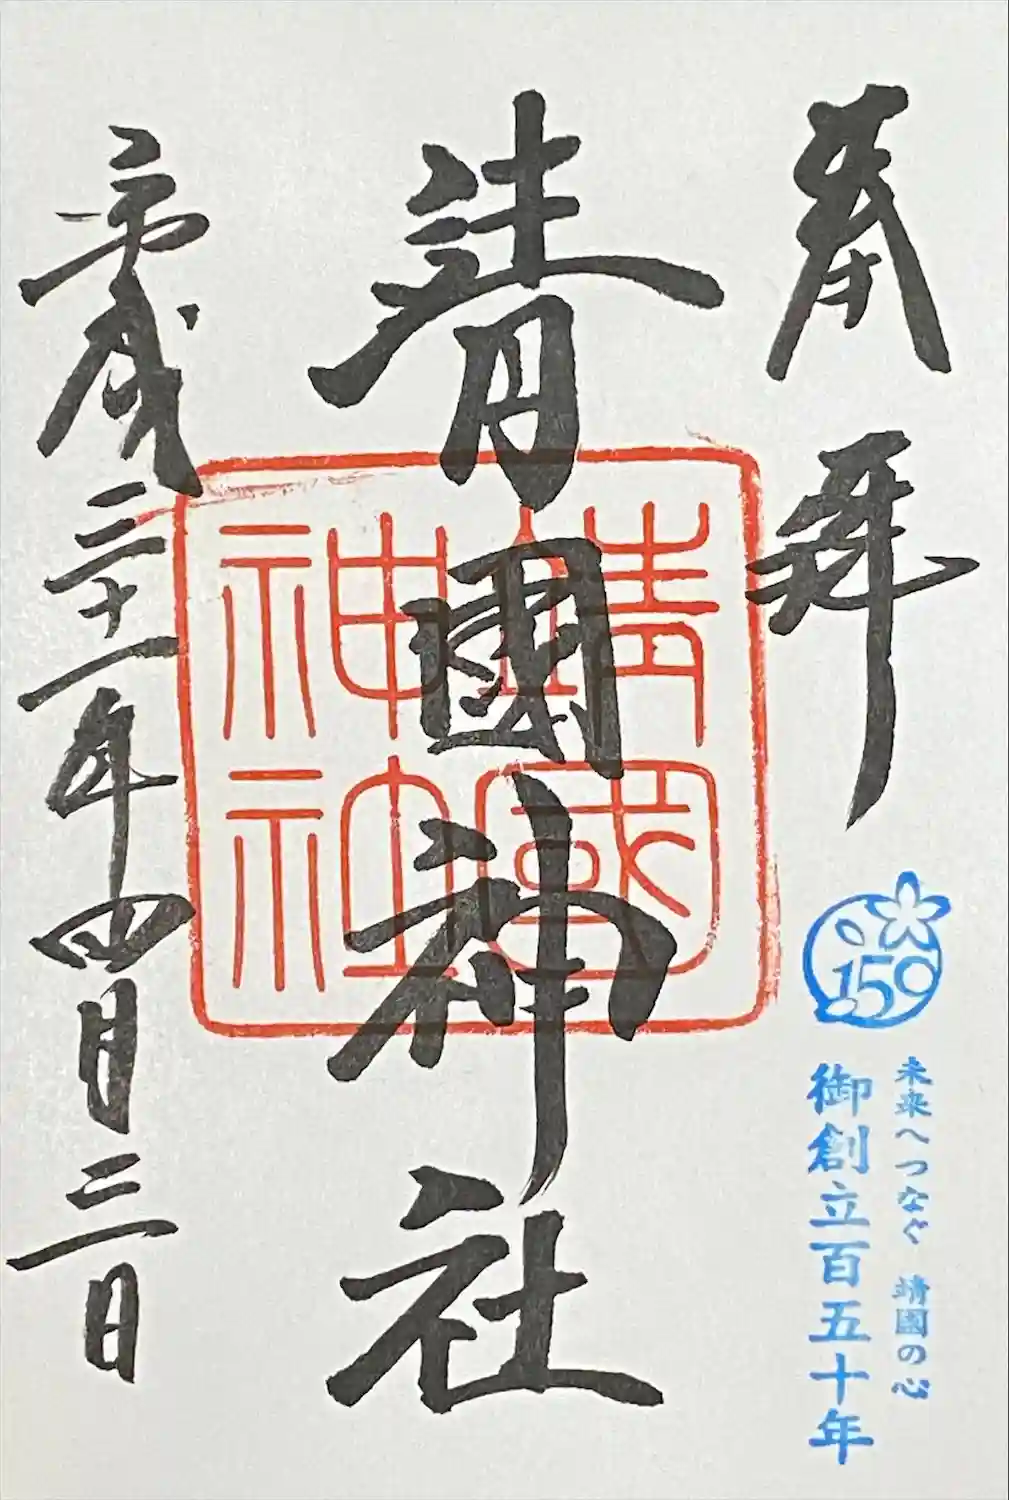 奉拝
150
未来へつなぐ 靖國の心
御創立百五十年
靖國神社
靖國神社
平成三十一年四月三日